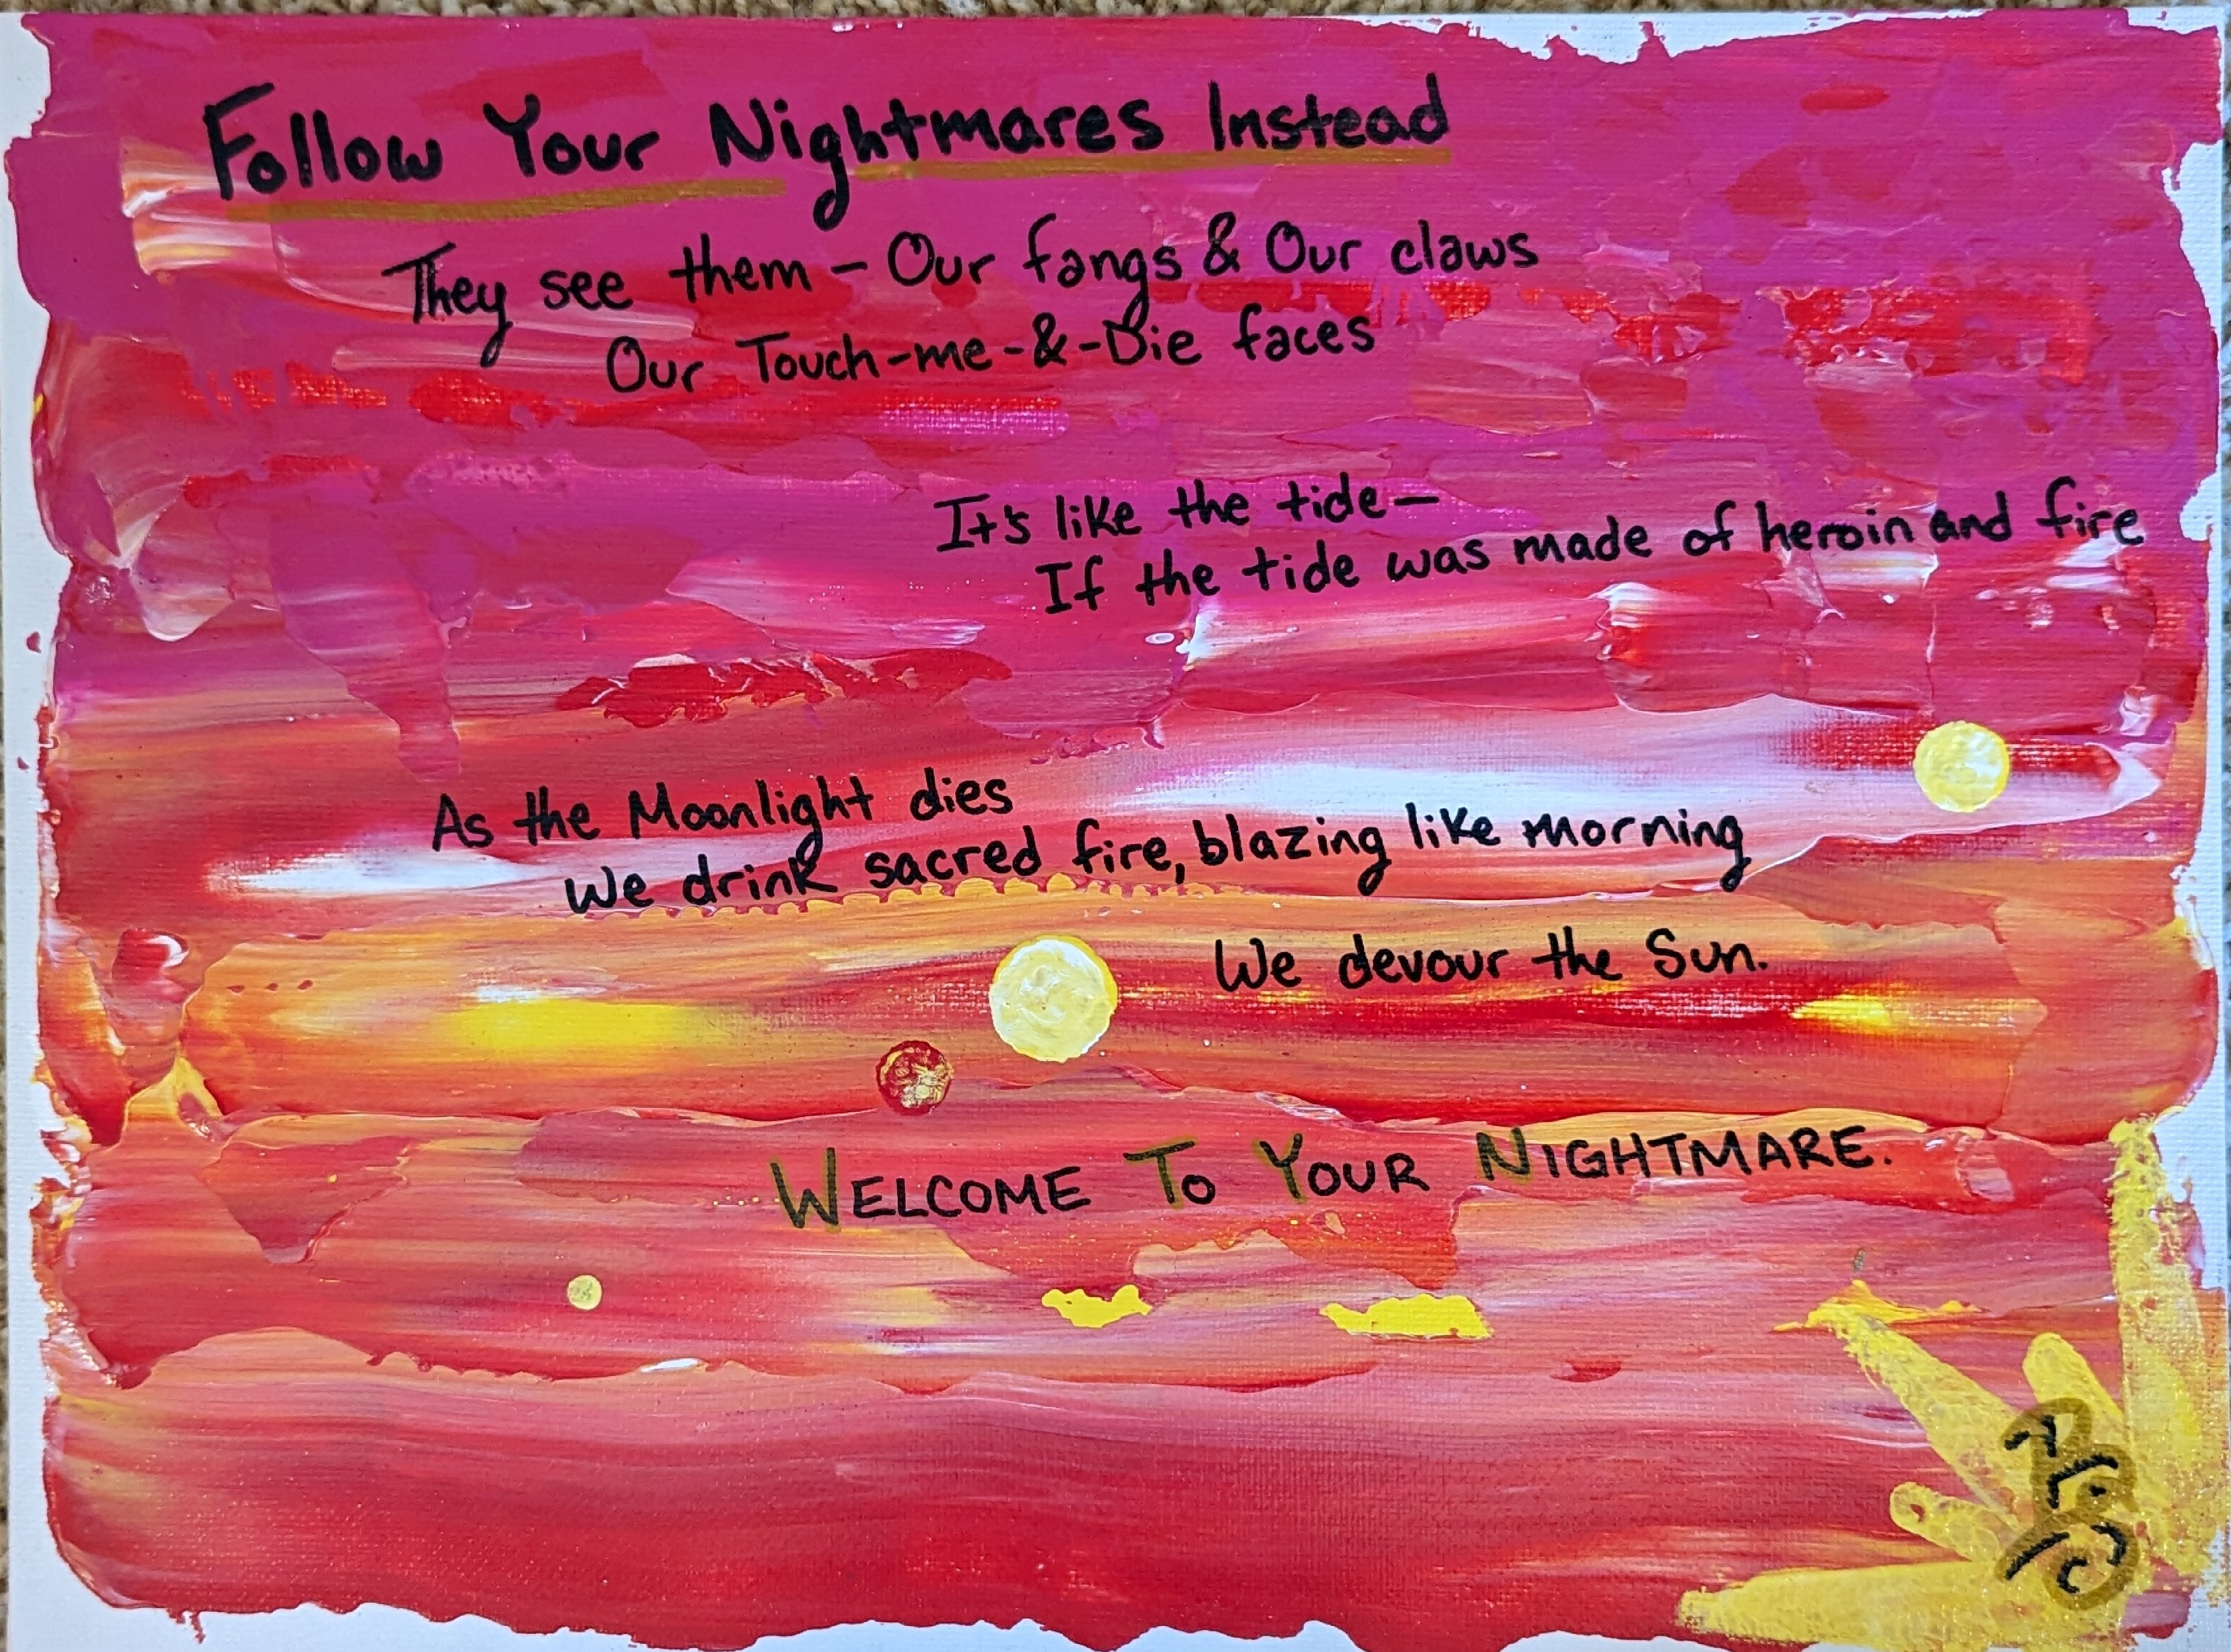 Follow Your Nightmares Instead
They see them – Our fangs & Our claws
Our Touch-me-&-Die faces
It's like the tide—
If the tide was made of heroin and fire
As the Moonlight dies
We drink sacred fire, blazing like morning
We devour the Sun.
WELCOME TO YOUR NIGHTMARE.